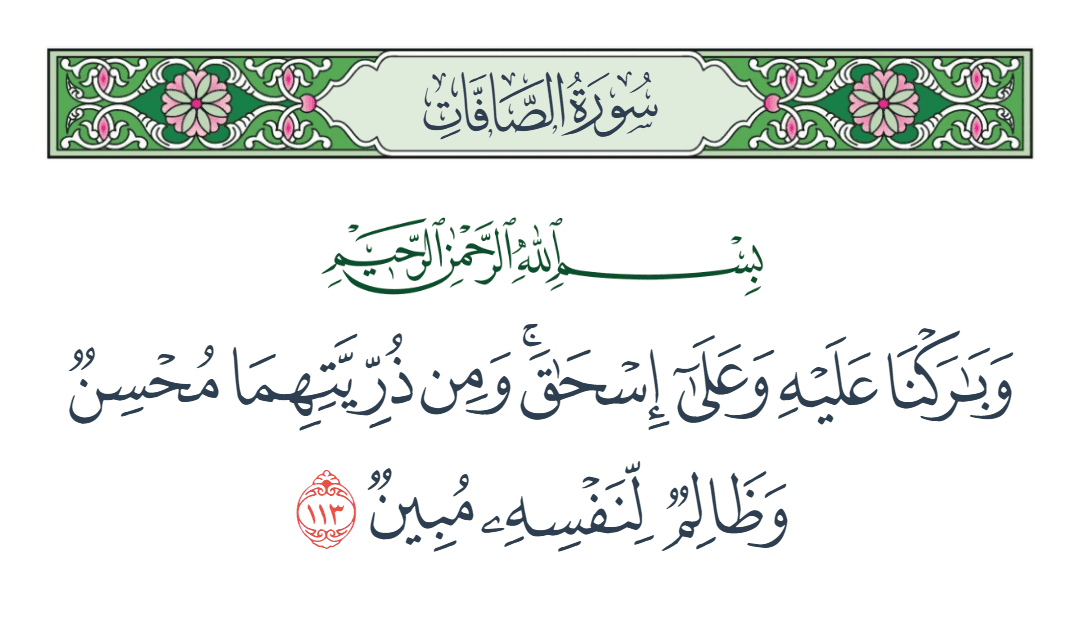 سُورَةُ الصَّافَّاتِ
بِسْمِ ٱللَّهِ ٱلرَّحْمَٰنِ ٱلرَّحِيمِ
وَبَٰرَكْنَا عَلَيْهِ وَعَلَىٰٓ إِسْحَٰقَ ۚ وَمِن ذُرِّيَّتِهِمَا مُحْسِنٌ
وَظَالِمٌ لِّنَفْسِهِۦ مُبِينٌ ١١٣